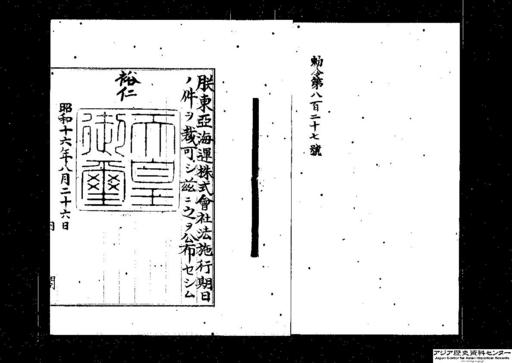 勅令第八百二十七號
朕東亞海運株式會社法施行期日
ノ件ヲ裁可シ茲ニ之ヲ公布セシム
裕仁
天皇御璽
昭和十六年八月二十六日
内閣
アジア歴史資料センター
Japan Center for Asian Historical Records